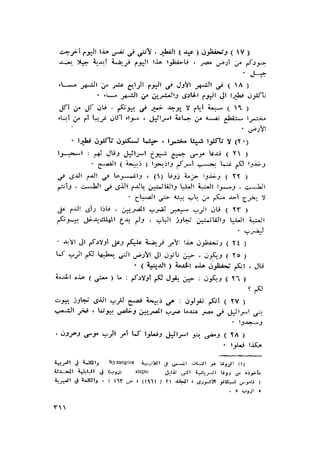 ( ١٧ ) وتحفظون ( عيد ) الفطير ، لأننى فى نفس هذا اليوم أخرجت
جنودكم من أرض مصر ، فاحفظوا هذا اليوم فريضة أبدية جيلا بعد
جيل ٠
( ١٨ ) فى الشهر الأول فى اليوم الرابع عشر من الشهر مساء
تأكلون فطيرا الى اليوم الحادى والعشرين من الشهر مساء ٠
( ١٩ ) سبعة أيام لا يوجد خمير فى بيوتكم ، فان كل من أكل
مختمرا ستقطع نفسه من جماعة اسرائيل ، سواء أكان غريبا أم من أبناء
الأرض ٠
(٢٠) لا تأكلوا شيئا مختمرا ، حيثما تسكنون تأكلون فطيرا ٠
( ٢١ ) فدعا موسى جميع شيوخ اسرائيل وقال لهم : اسحبوا
وخذوا لكم غنما بحسب أسركم واذبحوا ( ذبيحة ) الفصح ٠
( ٢٢ ) وخذوا حزمة زوفا (١) ، واغمسوها فى الدم الذى فى
الطست ، ومسوا العتبة العليا والقائمتين بالدم الذى فى الطست ، وأنتم
لا يخرج أحد منكم من باب بيته حتى الصباح ٠
( ٢٣ ) فان الرب سيعبر لضرب المصريين ، فاذا رأى الدم على
العتبة العليا والقائمتين تجاوز الباب ، ولم يدع المهلك يدخل بيوتكم
ليضرب ٠
( ٢٤ ) وتحفظون هذا الأمر فريضة عليكم وعلى أولادكم الى الأبد ٠
( ٢٥ ) ويكون ، حين تأتون الى الأرض التى يعطيها لكم الرب كما
قال ، انكم تحفظون هذه الخدمة ( الدينية ) ٠
( ٢٦ ) ويكون : حين يقول لكم أولادكم : ما ( معنى ) هذه الخدمة
لكم ؟
( ٢٧ ) انكم تقولون : هى ذبيحة فصح للرب الذى تجاوز بيوت
بنى اسرائيل فى مصر عندما ضرب المصريين وخلص بيوتنا ، فخر الشعب
وسجدوا ٠
( ٢٨ ) ومضى بنو اسرائيل وفعلوا كما أمر الرب موسى وهرون ،
هكذا فعلوا ٠
(١) الزوفا هو النبات المسمى فى اللاتينية Hyssopus والكلمة فى العربية
مأخوذة من زوفا السريانية التى تقابل zupu (زوب) فى البابلية الحديثة
( قاموس شيكاغو الآشورى ، المجلد ٢١ (١٩٦١) ، ص ١٦٣ ) ، والكلمة فى العبرية
« ازوب » ٠
٣١١